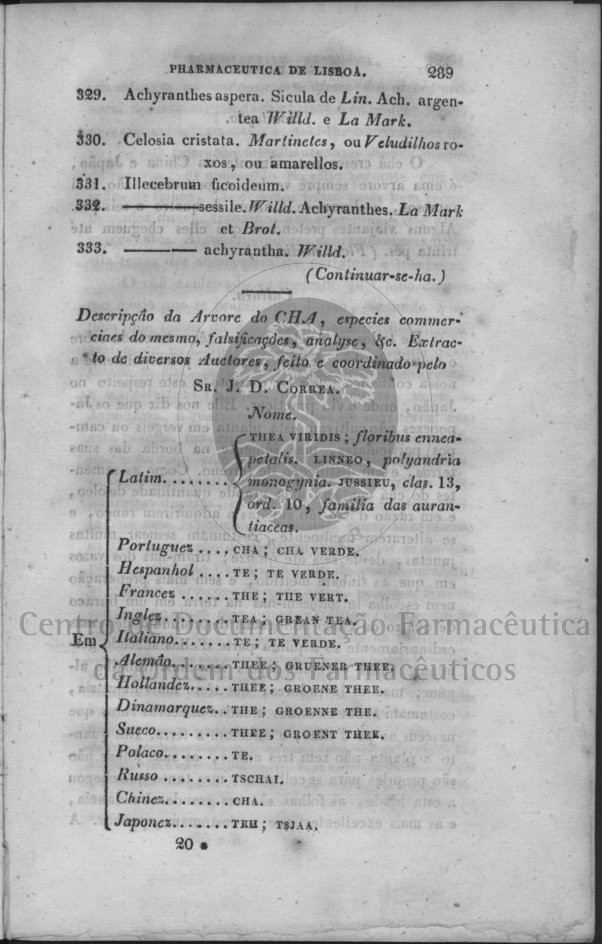 PHARMACEUTICA DE LISBOA. 239
329. Achyranthes aspera. Sicula de Lin. Ach. argen-
tea Willd. e La Mark.
330. Celosia cristata. Martinetes, ou Veludilhos ro-
xos, ou amarellos.
331. Illecebrum ficoideum.
332. ———sessile. Willd. Achyranthes. La Mark
et Brot.
333. ——— achyrantha. Willd.
(Continuar-se-ha.)
Descripção da Arvore do CHA, especies commer-
ciaes do mesmo, falsificações, analyse, &c. Extrac-
to de diversos Auctores, feito e coordinado pelo
SR. J. D. CORREA.
Nome.
Em
Latim........ THEA VIRIDIS; floribus ennea-
petalis. LINNEO, polyandria
monogynia. JUSSIEU, clas. 13,
ord. 10, familia das auran-
tiaceas.
Portuguez .... CHA; CHA VERDE.
Hespanhol .... TE; TE VERDE.
Francez ...... THE; THE VERT.
Inglez........ TEA; GREAN TEA.
Italiano....... TE; TE VERDE.
Alemão....... THEE; GRUENER THEE.
Hollandez..... THEE; GROENE THEE.
Dinamarquez.. THE; GROENNE THE.
Sueco......... THEE; GROENT THEE.
Polaco........ TE.
Russo ........ TSCHAI.
Chinez........ CHA.
Japonez....... TEH; TSJAA.
20 *
Centro de Documentação Farmacêutica
da Ordem dos Farmacêuticos